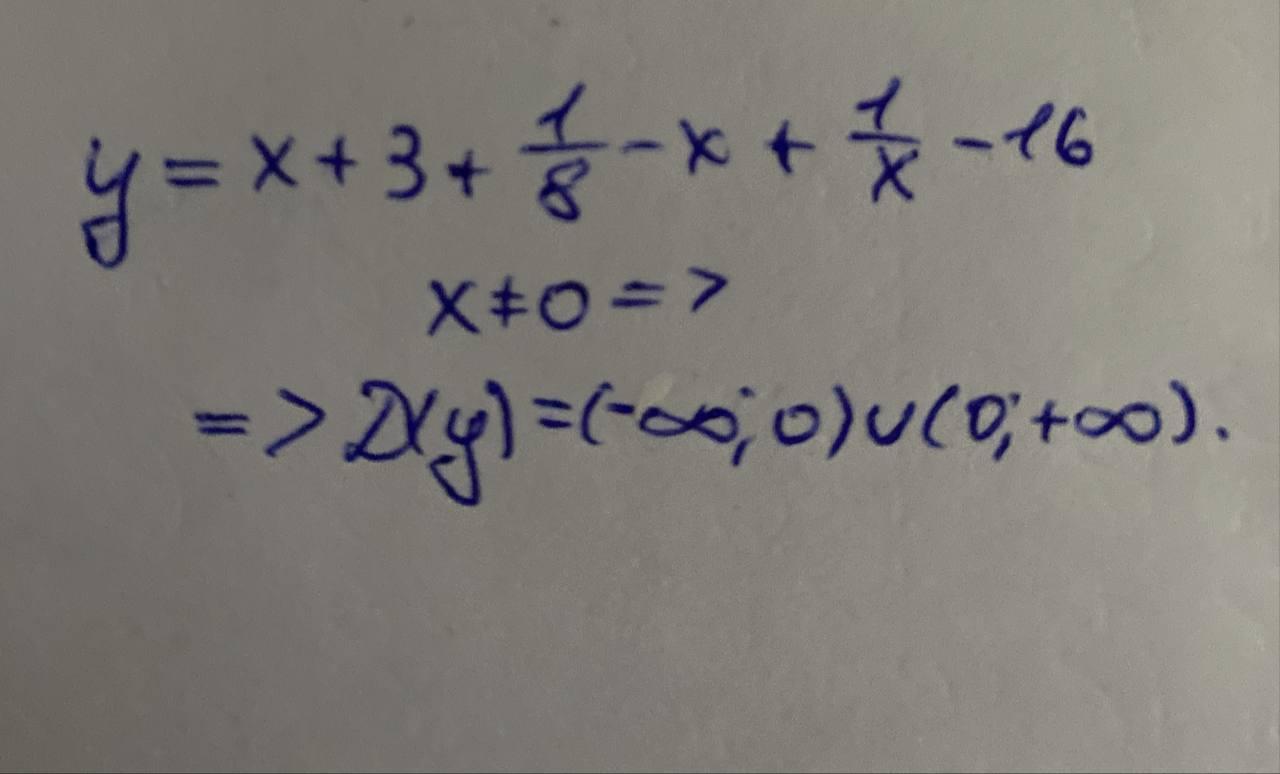 y = x + 3 + 1/8 - x + 1/x - 16
x ≠ 0 =>
=> D(y) = (-∞; 0) ∪ (0; +∞).